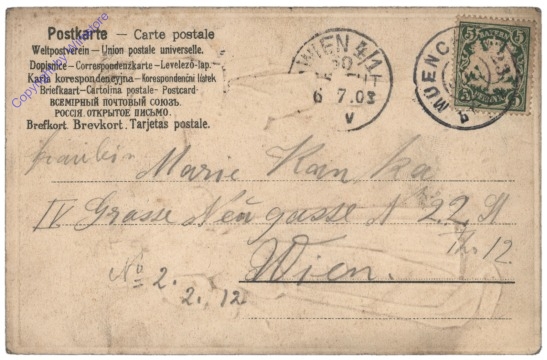 Postkarte — Carte postale
Weltpostverein — Union postale universelle.
Dopisnice — Correspondenzkarte — Levelező-lap.
Karta korespondencyjna — Korespondenční lístek
Briefkaart — Cartolina postale - Postcard
ВСЕМІРНЫЙ ПОЧТОВЫЙ СОЮЗЪ.
РОССІЯ. ОТКРЫТОЕ ПИСЬМО.
Brefkort. Brevkort. Tarjetas postale.
WIEN 4/1
6. 7.03
V
MUENC
BAYERN
5 5
5 5
Fräulein Marie Kanka
IV Grosse Neugasse N 22
Th. 12
Wien.
No 2.
2. 12